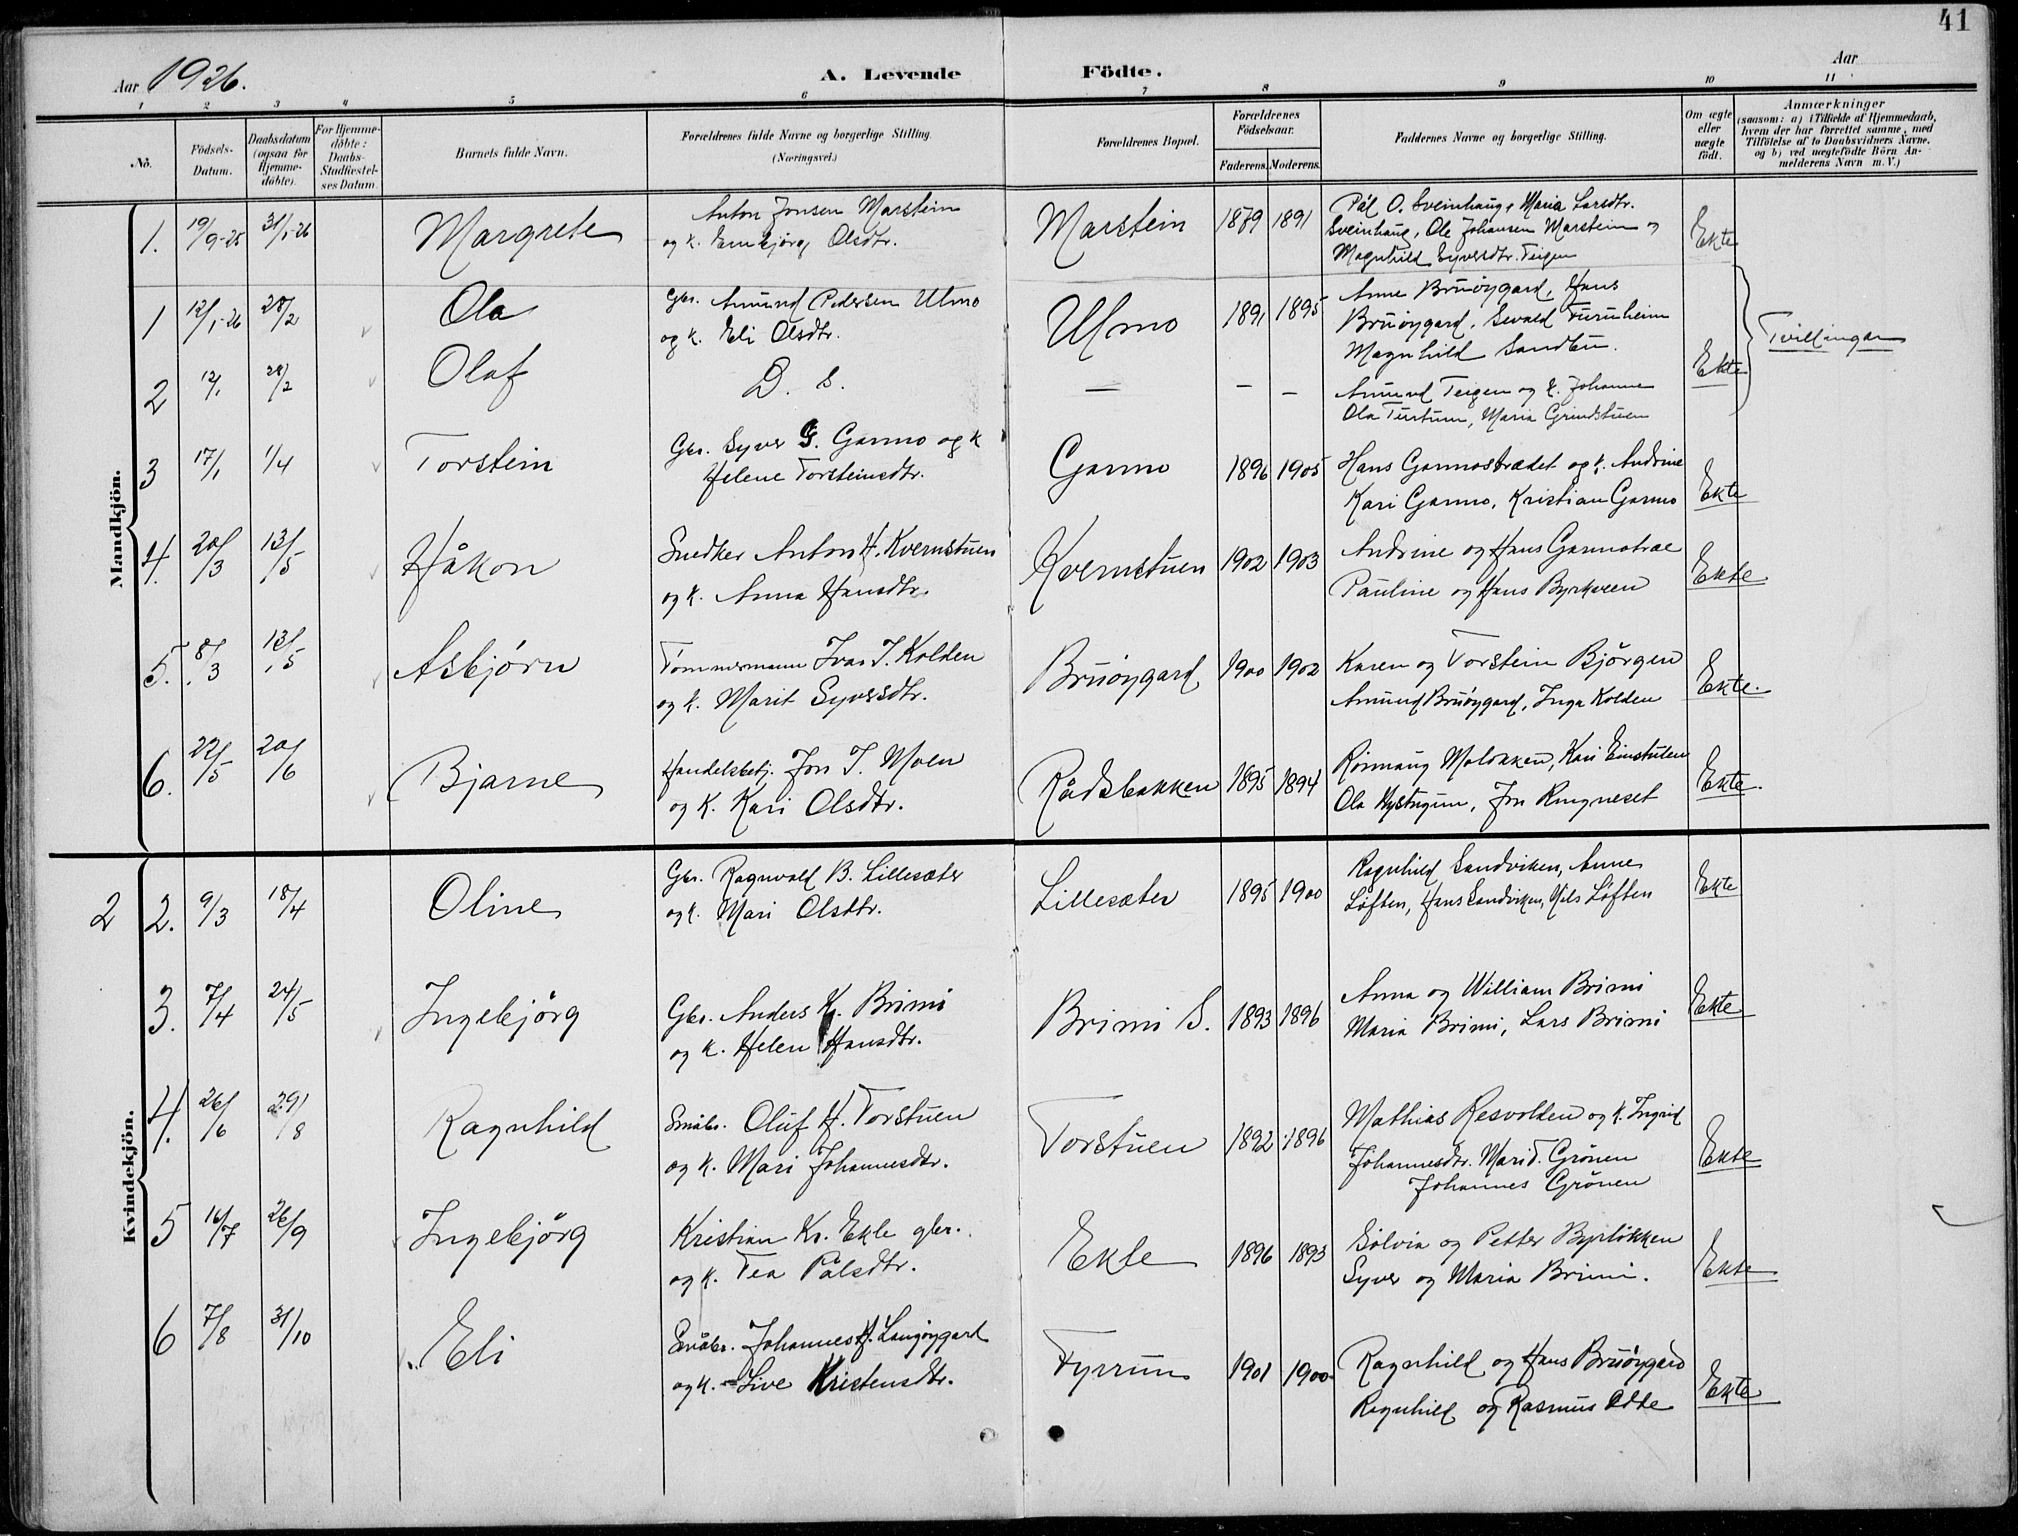 41
Aar 1926.
A. Levende Födte.
Aar
1 2 3 4 5 6 7 8 9 10 11
No.
Födsels-Datum.
Daabsdatum (ogsaa for Hjemme-döbte).
For Hjemme-döbte: Daabs-Stadfæstel-ses Datum.
Barnets fulde Navn.
Forældrenes fulde Navne og borgerlige Stilling. (Næringsvei.)
Forældrenes Bopæl.
Forældrenes Födselsaar.
Faderens. Moderens.
Faddernes Navne og borgerlige Stilling.
Om ægte eller uægte födt.
Anmærkninger
(saasom: a) i Tilfælde af Hjemmedaab,
hvem der har forrettet samme, med
Tilföielse af to Daabsvidners Navne.
og b) ved uægtefödte Börn An-
melderens Navn m. V.)
Mandkjön.
1. 19/9-25 31/1-26 Margrete Anton Jonsen Marstein Marstein 1879 1891 Pål O. Sveinhaug, Maria Larsdtr.
og k. Olsdtr. Sveinhaug, Ole Johansen Marstein og Ekte
Magnhild Syversdtr. Teigen
1 12/1-26 28/2 Ola Gbr. Amund Pedersen Ulmo Ulmo 1891 1895 Anne Bruøygard, Hans
og k. Eli Olsdtr. Bruøygard, Sevald Furuheim Tvillingar
Magnhild Sandbu.
2 12/1 28/2 Olaf D. s. — — — Amund Teigen og k. Johanne Ekte
Ola Turtum, Maria Grindstuen
3 17/1 1/4 Torstein Gbr. Syver G. Garmo og k Garmo 1896 1905 Hans Garmostrædet og k. Andrine
Helene Torsteinsdtr. Kari Garmo, Kristian Garmo Ekte
4. 20/3 13/5 Håkon Snedker Anton H. Kvernstuen Kvernstuen 1902 1903 Andrine og Hans Garmotræ Ekte
og k. Anna Hansdtr. Pauline og Hans Byrkveen
5. 8/3 13/5 Asbjørn Tømmermann Ivar J. Kolden Bruøygard 1900 1902 Karen og Torstein Bjørgen
og k. Marit Syversdtr. Amund Bruøygard, Inga Kolden Ekte.
6. 22/5 20/6 Bjarne Handelsbetj. Jon T. Moen Rådsbakken 1895 1894 Rønnaug Moløkken, Kari Einstulen
og k. Kari Olsdtr. Ola Nystugun, Jon Ringneset Ekte.
Kvindekjön.
2 2. 9/3 18/4 Oline Gbr. Ragnvald B. Lillesæter Lillesæter 1895 1900 Ragnhild Sandviken, Anne Ekte
og k. Mari Olsdtr. Løften, Hans Sandviken, Nils Løften
3. 7/4 24/5 Ingebjörg Gbr. Anders K. Brimi Brimi S. 1893 1896 Anna og William Brimi Ekte
og k. Helen Hansdtr. Maria Brimi, Lars Brimi
4. 26/6 29/8 Ragnhild Småbr. Oluf H. Torstuen Torstuen 1892 1896 Mathias Resvolden og k. Ingrid
og k. Mari Johannesdtr. Johannesdtr. Mari T. Grönen Ekte
Johannes Grönen
5 16/7 26/9 Ingebjörg Kristian Kr. Ekle gbr. Ekle 1896 1893 Sølvia og Petter Byrløkken
og k. Tea Pålsdtr. Syver og Maria Brimi. Ekte
6 7/8 31/10 Eli Småbr. Johannes H. Langøygard Fyrrun 1901 1900 Ragnhild og Hans Bruøygard
og k. Live Kristensdtr. Ragnhild og Rasmus Odde Ekte